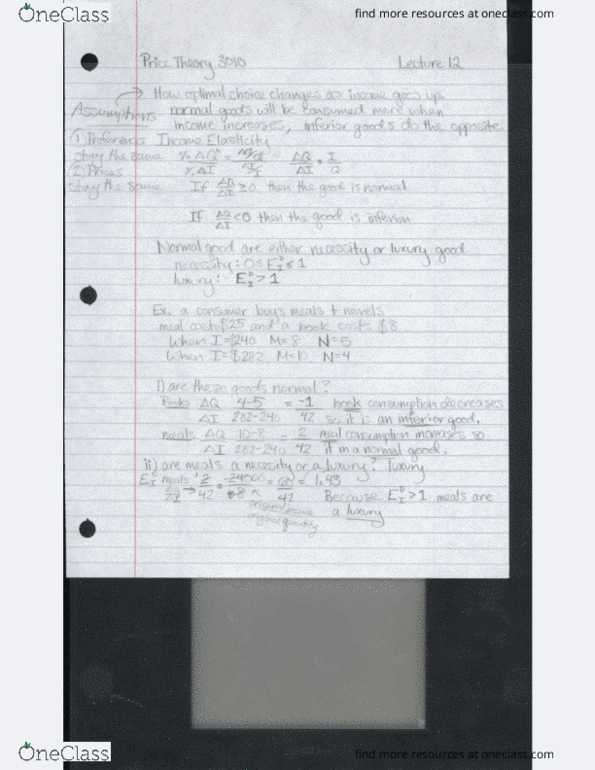 OneClass
find more resources at oneclass.com
Price Theory 3010 Lecture 12
How optimal choice changes as income goes up
Assumptions normal goods will be consumed more when
income increases, inferior goods do the opposite
① Preference Income Elasticity
stay the same %ΔQ = ΔQ/Q ΔQ · I
%ΔI ΔI/I ΔI Q
② Prices
stay the same If ΔQ/ΔI ≥0 then the good is normal
If ΔQ/ΔI <0 then the good is inferior
Normal good are either necessity or luxury good
necessity: 0≤ E ≤1
luxury: E >1
Ex. a consumer buys meals + novels
meal costs $25 and a book costs $8
When I=$240 M=8 N=5
When I=$282 M=10 N=4
i) are these goods normal?
ΔQ 4-5 = -1 book consumption decreases
ΔI 282-240 42 so it is an inferior good.
meals ΔQ 10-8 = 2 meal consumption increases so
ΔI 282-240 42 it is a normal good.
ii) are meals a necessity or a luxury? luxury
meals 2 = 1.43
ΔQ/ΔI → 42 8 42 Because E >1 meals are
original income a luxury
original quantity
OneClass
find more resources at oneclass.com